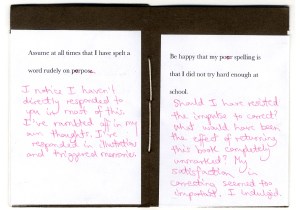 Assume at all times that I have spelt a
word rudely on purpose.
I notice I haven't
directly responded to
you in most of this.
I've rambled off in my
own thoughts. I've
responded in illustrations
and triggered memories
Be happy that my poor spelling is
that I did not try hard enough at
school.
Should I have resisted
the impulse to correct?
What would have been
the effect of returning
this book completely
unmarked? My
satisfaction in
correcting seemed too
important. I indulged.